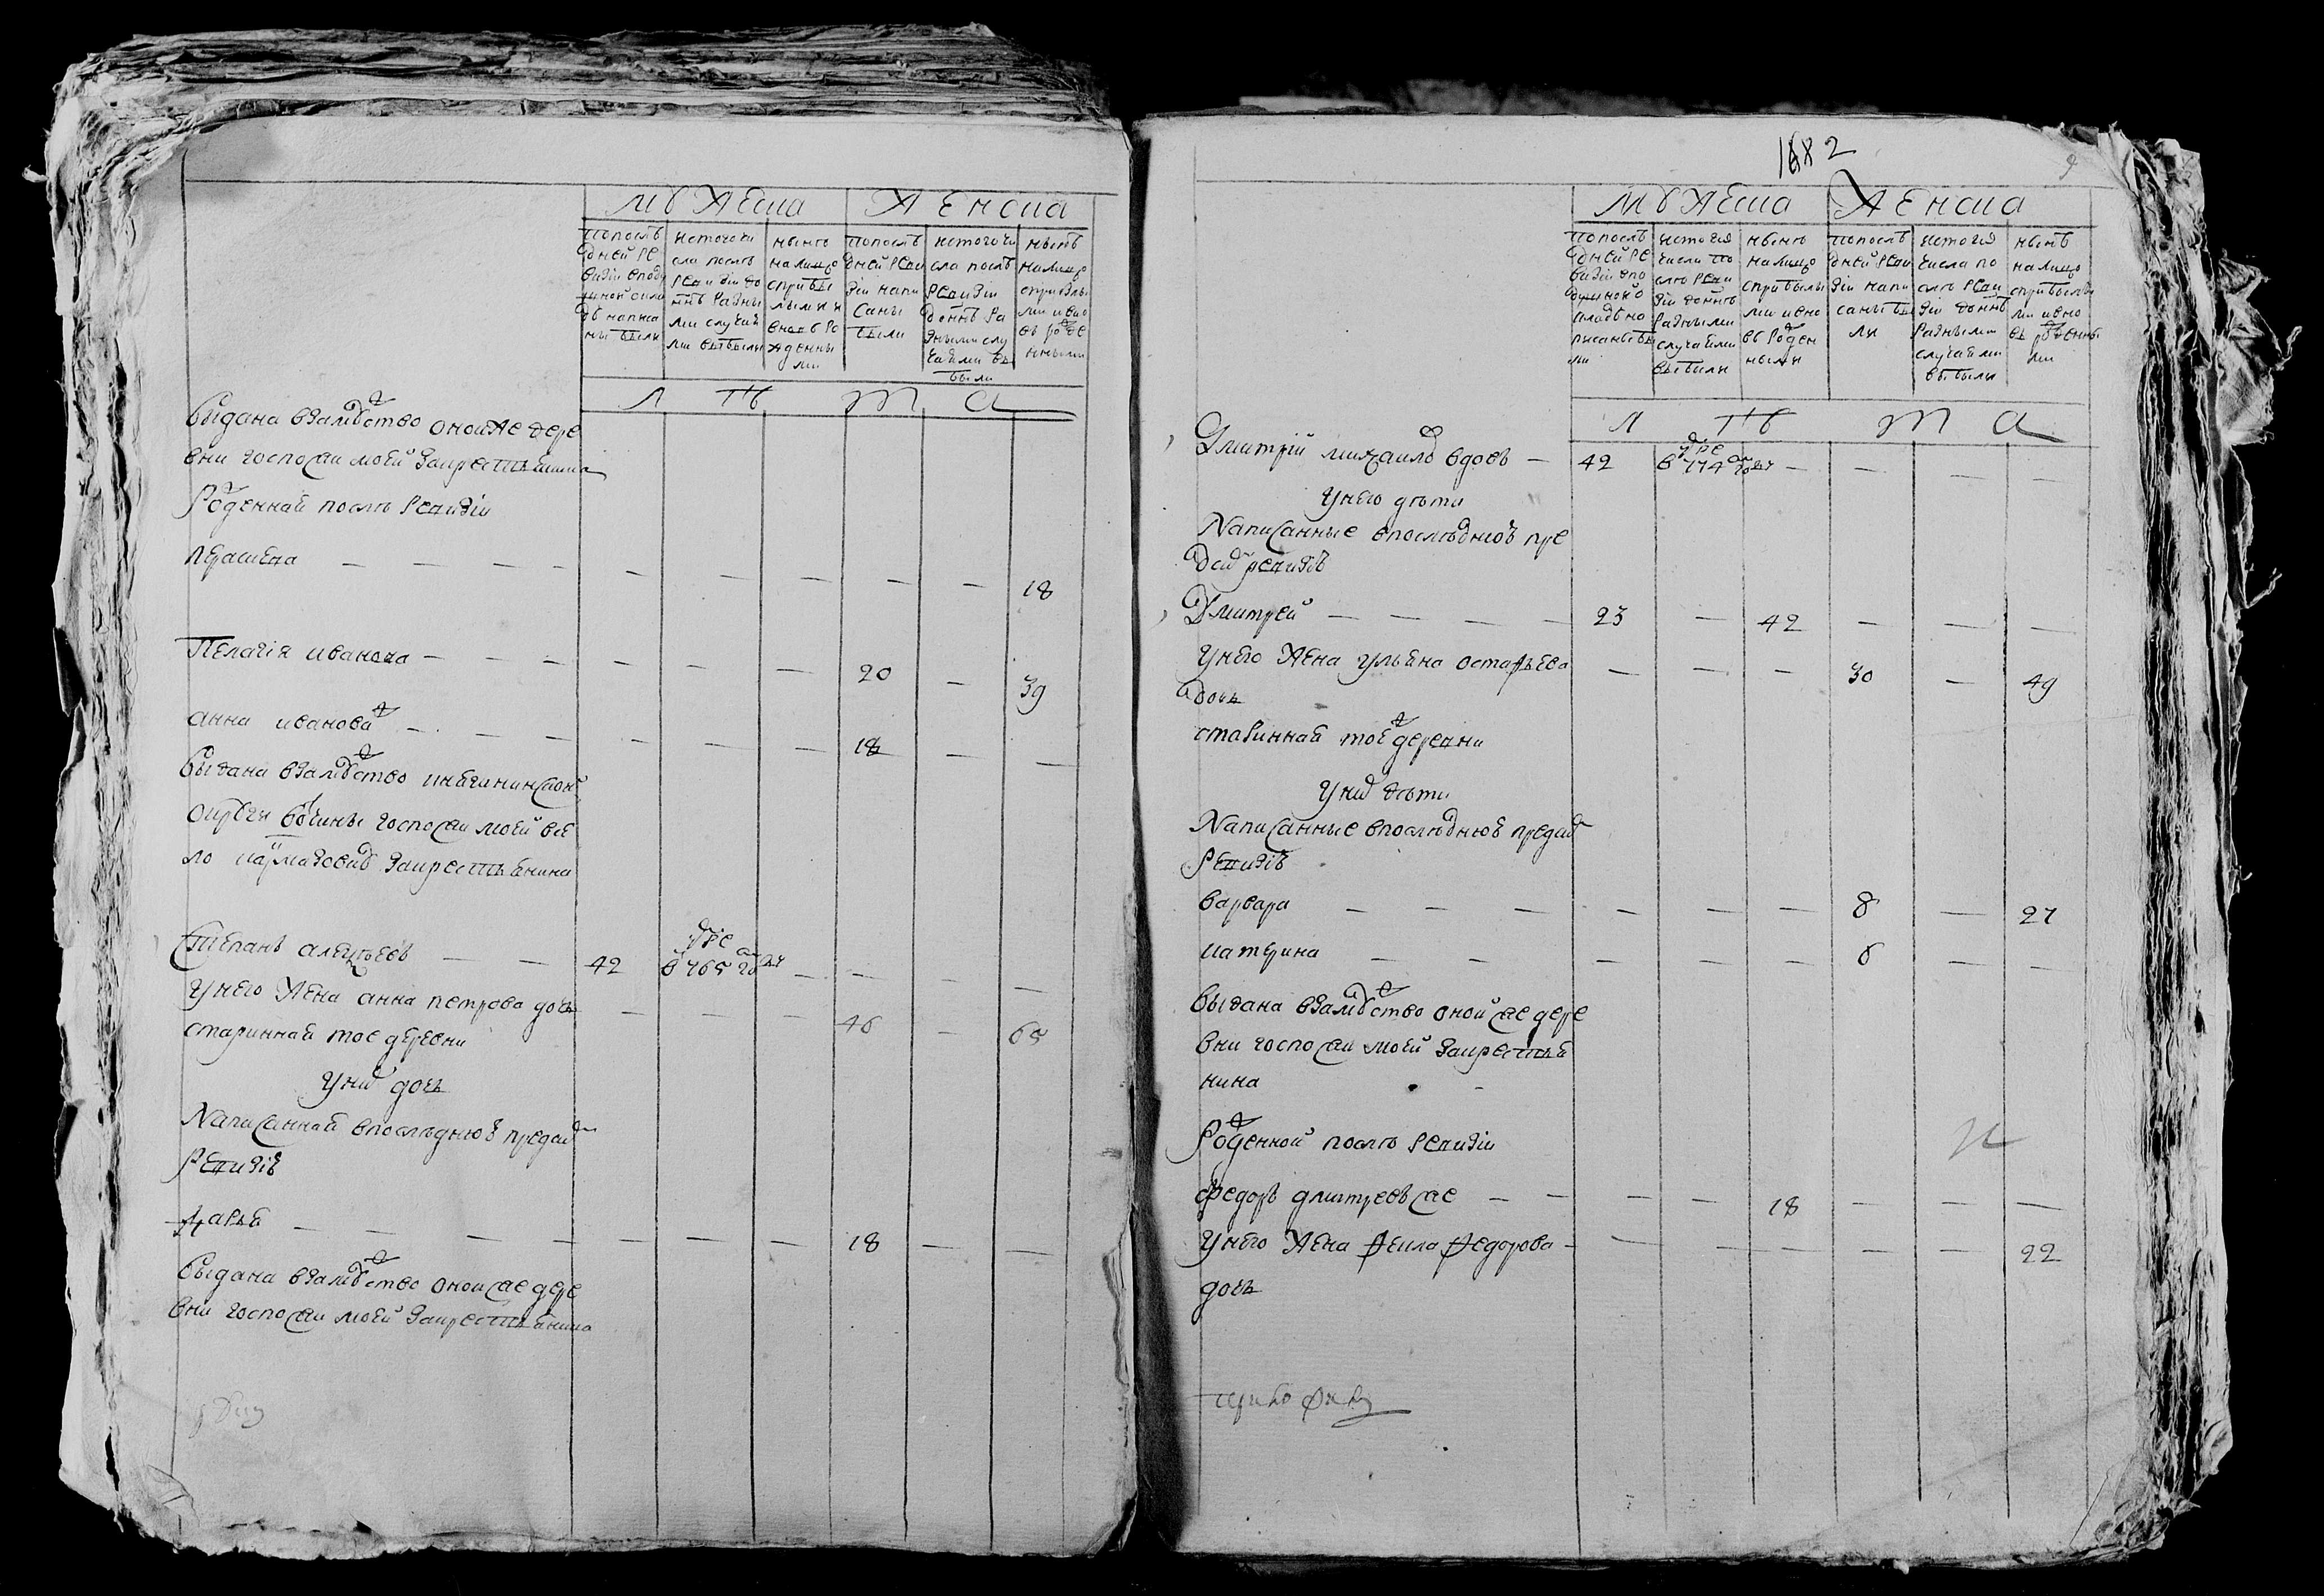 мужеска женска
попослѣ
дней ре
визіи вподу
шной окла
дъ написа
ны были
источочи
сла послѣ
ревизіи до
ннѣ разны
ми случаи
ми выбыли
нынѣ
налицо
сприбы
лыми и
вновь ро
жденны
ми
попослѣ
дней реви
зіи напи
саны
были
источочи
сла послѣ
ревизіи
доннѣ ра
зными слу
чаями вы
были
нынѣ
налицо
сприбылы
ми ивно
вь рожде
нными
л ѣ т а
выдана взамужство оной же дере
вни господски моей закрестьянина
рожденная послѣ ревизіи
лукашена — — — — — — — — — 18
пелагія иванова — — — — — — 20 — 39
анна иванова — — — — — — 18 — —
выдана взамужство
округи вотчины господски моей все
ло закрестьянина
степанъ алексѣевъ — — 42 умре в 765 году — — — —
унего жена анна петрова дочь — — — 46 — 65
стариннай тое деревни
уних дочь
написаннай впослѣднюю предъ сим
ревизію
дарья — — — — — — — 18 — —
выдана взамужство оной же дере
вни господски моей закрестьянина
2
9
мужеска женска
попослѣ
дней ре
визіи впо
душной о
кладъ на
писаны бы
ли
источго
числа по
слѣ реви
зіи доннѣ
разными
случаями
выбыли
нынѣ
налицо
сприбылы
ми ивно
вь рожден
ными
попослѣ
дней реви
зіи напи
саны бы
ли
источго
числа по
слѣ реви
зіи доннѣ
разными
случаями
выбыли
нынѣ
налицо
сприбылы
ми ивно
вь рожденны
ми
л ѣ т а
дмитрій михаиловъ вдовъ — 42 умре в 774 году — — — —
унего дѣти
написанные впослѣднюю пре
дъ сим ревизію
дмитрей — — — — 23 — 42 — — —
унего жена ульяна остафьева — — — 30 — 49
дочь
стариннай тое ж деревни
уних дѣти
написанные впослѣднюю предъ сим
ревизію
варвара — — — — — — 8 — 27
катерина — — — — — — 6 — —
выдана взамужство оной же дере
вни господски моей закрестья
нина
рожденной послѣ ревизіи
федоръ дмитревъ же — — — — 18 — — —
унего жена фекла федорова — — — — — — 22
дочь